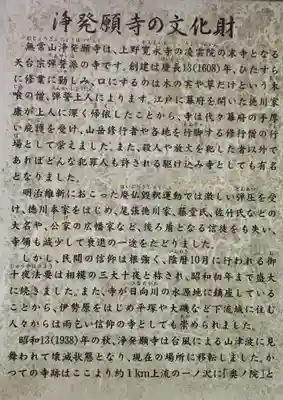 浄発願寺の文化財
無常山浄発願寺は、上野寛永寺の凌雲院の末寺となる
天台宗弾誓派の寺です。創建は慶長13(1608)年、ひたすら
に修業に勤しみ、口にするのは木の実や草だけという木
喰の僧、弾誓上人によります。江戸に幕府を開いた徳川家
康が上人に深く帰依したことから、寺は代々幕府の手厚
い庇護を受け、山岳修行者や各地を行脚する修行僧の行
場として栄えました。また、殺人や放火を犯した者以外で
あればどんな犯罪人も許される駆け込み寺としても有名
となりました。
明治維新におこった廃仏毀釈運動では激しい弾圧を受
け、徳川本家をはじめ、尾張徳川家、藤堂氏、佐竹氏などの
大名や、公家の広幡家など、後ろ盾となる信徒をも失い、
寺領も減少して衰退の一途をたどりました。
しかし、民間の信仰は根強く、陰暦10月に行われる御
十夜法要は相模の三大十夜と称され、昭和初年まで盛大
に続きました。また、寺が日向川の水源地に鎮座している
ことから、伊勢原をはじめ平塚や大磯など下流域に住む
人々からは雨乞い信仰の寺としても崇められました。
昭和13(1938)年の秋、浄発願寺は台風による山津波に見
舞われて壊滅状態となり、現在の場所に移転しました。か
つての寺跡はここより約1km上流の一ノ沢に「奥ノ院」と